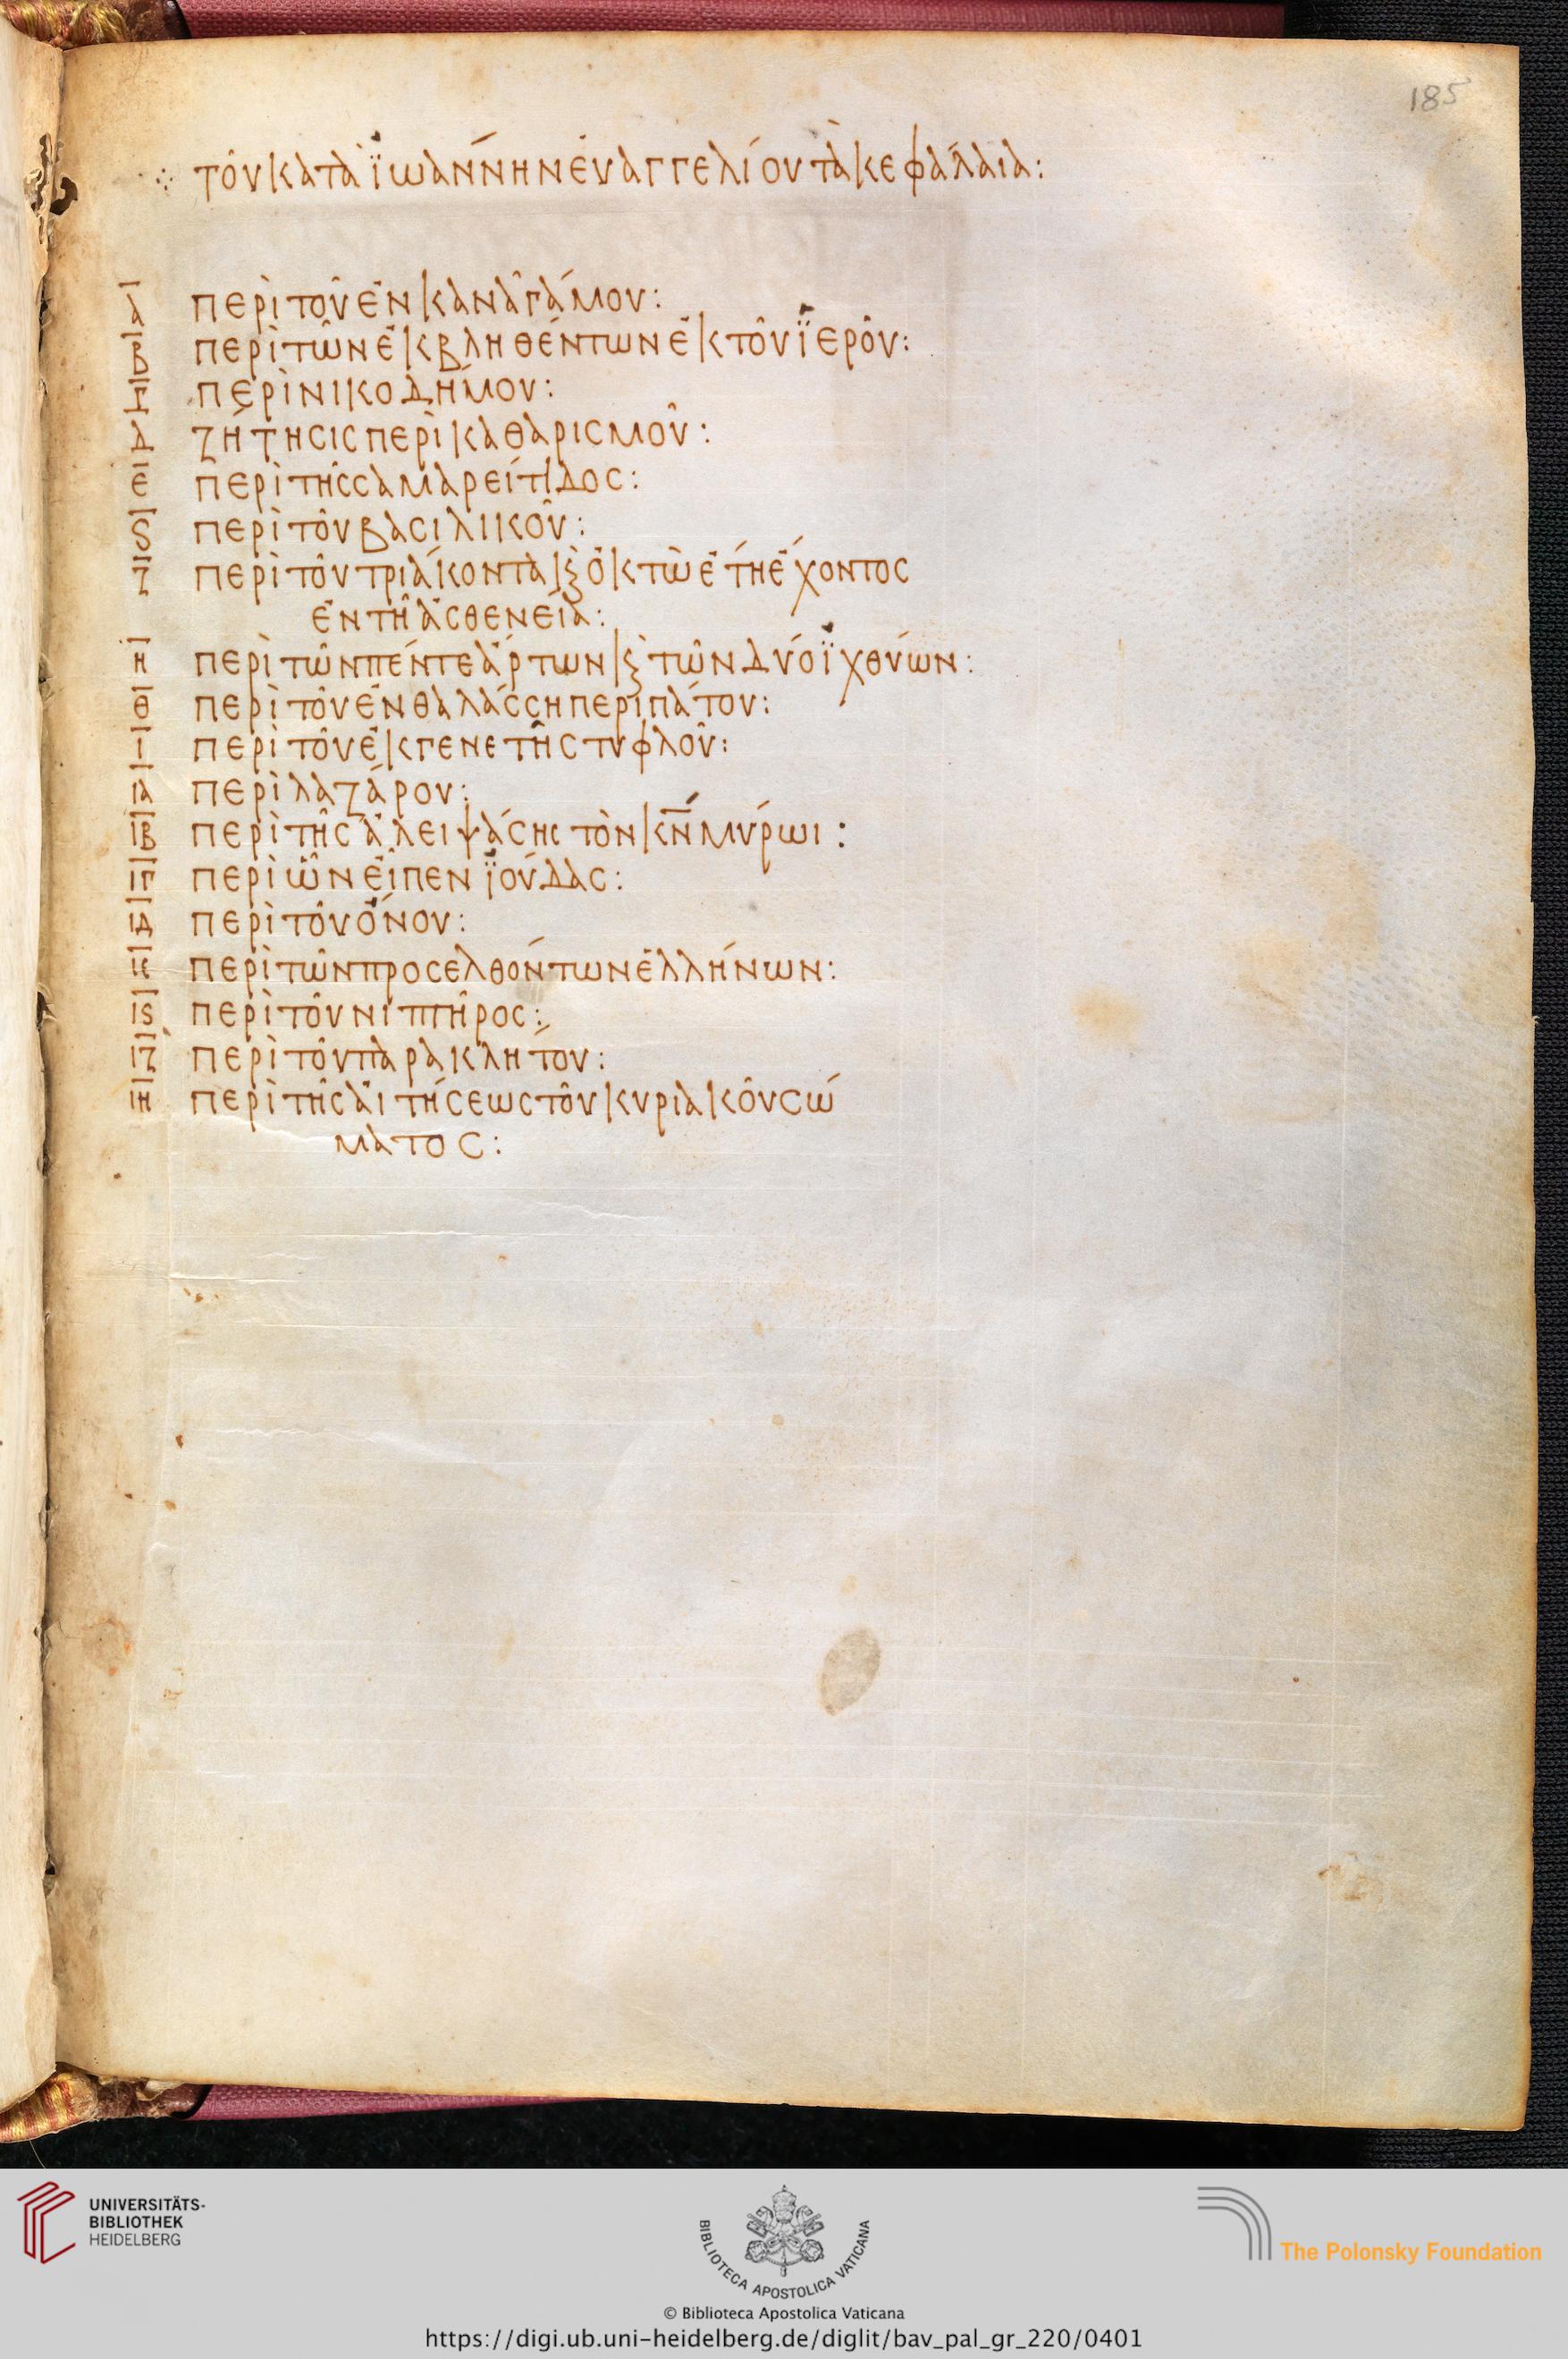 185
⁘ τοῦ κατὰ ϊωάννην ἐυαγγελίου τὰ κεφάλαια:
α περὶ τοῦ ἐν κανᾶ γάμου:
β περὶ τῶν ἐκβληθέντων ἐκ τοῦ ϊεροῦ:
γ περὶ νικοδήμου:
δ ζήτησις περὶ καθαρισμοῦ:
ε περὶ τῆς σαμαρείτιδος:
ϛ περὶ τοῦ βασιλικοῦ:
ζ περὶ τοῦ τριάκοντα ϗ ὀκτὼ ἔτη ἔχοντος
ἐν τῆ ἀσθενεία:
η περὶ τῶν πέντε ἄρτων ϗ τῶν δύο ϊχθύων:
θ περὶ τοῦ ἐν θαλάσση περιπάτου:
ι περὶ τοῦ ἐκ γενετῆς τυφλοῦ:
ια περὶ λαζάρου:
ιβ περὶ τῆς ἀλειψάσης τὸν κν μύρωι:
ιγ περὶ ὧν εἶπεν ϊούδας:
ιδ περὶ τοῦ ὄνου:
ιε περὶ τῶν προσελθόντων ἑλλήνων:
ιϛ περὶ τοῦ νιπτῆρος:
ιζ περὶ τοῦ παρακλήτου:
ιη περὶ τῆς ἀιτήσεως τοῦ κυριακοῦ σώ
ματος:
UNIVERSITÄTS-
BIBLIOTHEK
HEIDELBERG
BIBLIOTECA APOSTOLICA VATICANA
The Polonsky Foundation
© Biblioteca Apostolica Vaticana
https://digi.ub.uni-heidelberg.de/diglit/bav_pal_gr_220/0401